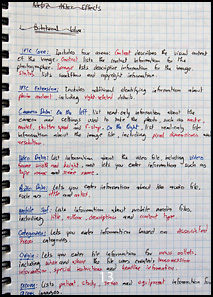 Adobe After Effects
IPTC Core: Includes four areas: Contact describes the visual content
of the image. Contact lists the contact information for the
photographer. Image lists descriptive information for the image.
Status lists workflow and copyright information.
IPTC Extension: Includes additional identifying information about
photo content, including rights-related details.
Camera Data: On the left list read-only information about the
camera and settings used to take the photo, such as make,
model, shutter speed and f-stop. On the right, list read-only file
information about the image file, including pixel dimensions and
resolution.
Video Data: List information about the video file, including video
frame width and height, and lets you enter information such as
tape name and scene name.
Audio Data: Lets you enter information about the audio file,
such as title and artist.
Mobile SWF: Lists information about mobile media files,
including title, author, description and content type.
Categories: Lets you enter information based on Associated
Press categories.
Origin: Lets you enter file information for news outlets,
including when and where the file was created, transmission
information, special instructions, and headline information.
DICOM: Lists patient, study, series and equipment information for
DICOM images.